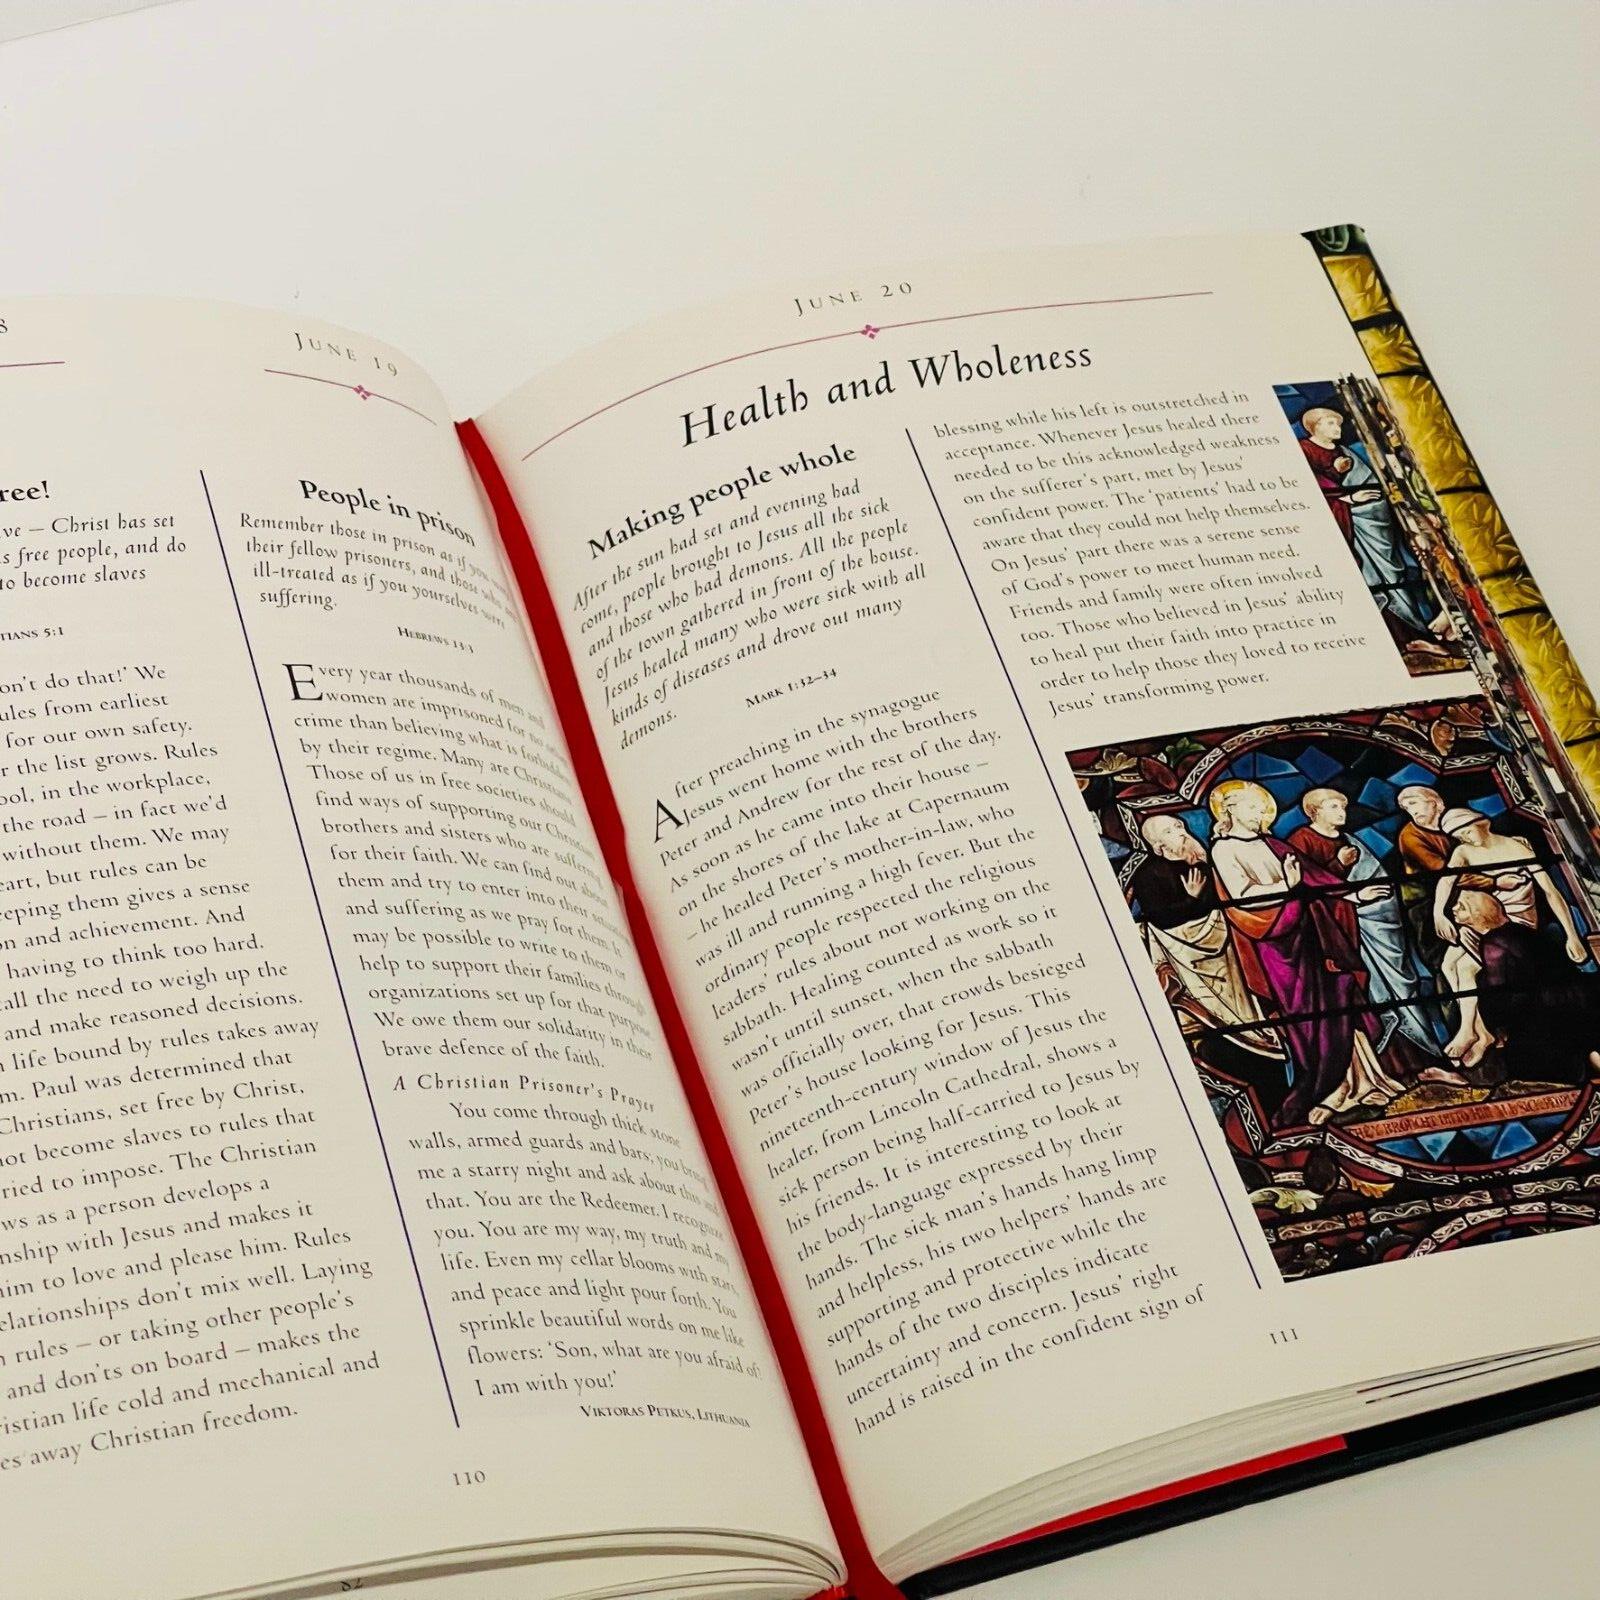 8
ree!
ve – Christ has set
s free people, and do
to become slaves
TIANS 5:1
on't do that!' We
ules from earliest
for our own safety.
r the list grows. Rules
ool, in the workplace,
the road – in fact we'd
without them. We may
eart, but rules can be
eeping them gives a sense
on and achievement. And
having to think too hard.
all the need to weigh up the
and make reasoned decisions.
life bound by rules takes away
m. Paul was determined that
Christians, set free by Christ,
not become slaves to rules that
ried to impose. The Christian
ws as a person develops a
nship with Jesus and makes it
him to love and please him. Rules
elationships don't mix well. Laying
rules – or taking other people's
and don'ts on board – makes the
ristian life cold and mechanical and
es away Christian freedom.
JUNE 19
People in prison
Remember those in prison as if you
their fellow prisoners, and those who
ill-treated as if you yourselves were
suffering.
HEBREWS 13:3
Every year thousands of men and
women are imprisoned for no
crime than believing what is forbidden
by their regime. Many are Christians
Those of us in free societies should
find ways of supporting our Christian
brothers and sisters who are suffering
for their faith. We can find out about
them and try to enter into their
and suffering as we pray for them. It
may be possible to write to them or
help to support their families through
organizations set up for that purpose
We owe them our solidarity in their
brave defence of the faith.
A Christian Prisoner's Prayer
You come through thick stone
walls, armed guards and bars; you bring
me a starry night and ask about this and
that. You are the Redeemer. I recognize
you. You are my way, my truth and my
life. Even my cellar blooms with stars,
and peace and light pour forth. You
sprinkle beautiful words on me like
flowers: 'Son, what are you afraid of?
I am with you!'
VIKTORAS PETKUS, LITHUANIA
110
JUNE 20
Health and Wholeness
Making people whole
After the sun had set and evening had
come, people brought to Jesus all the sick
and those who had demons. All the people
of the town gathered in front of the house.
Jesus healed many who were sick with all
kinds of diseases and drove out many
demons.
MARK 1:32–34
After preaching in the synagogue
Jesus went home with the brothers
Peter and Andrew for the rest of the day.
As soon as he came into their house –
on the shores of the lake at Capernaum
– he healed Peter's mother-in-law, who
was ill and running a high fever. But the
ordinary people respected the religious
leaders' rules about not working on the
sabbath. Healing counted as work so it
wasn't until sunset, when the sabbath
was officially over, that crowds besieged
Peter's house looking for Jesus. This
nineteenth-century window of Jesus the
healer, from Lincoln Cathedral, shows a
sick person being half-carried to Jesus by
his friends. It is interesting to look at
the body-language expressed by their
hands. The sick man's hands hang limp
and helpless, his two helpers' hands are
supporting and protective while the
hands of the two disciples indicate
uncertainty and concern. Jesus' right
hand is raised in the confident sign of
blessing while his left is outstretched in
acceptance. Whenever Jesus healed there
needed to be this acknowledged weakness
on the sufferer's part, met by Jesus'
confident power. The 'patients' had to be
aware that they could not help themselves.
On Jesus' part there was a serene sense
of God's power to meet human need.
Friends and family were often involved
too. Those who believed in Jesus' ability
to heal put their faith into practice in
order to help those they loved to receive
Jesus' transforming power.
THEY BROUGHT UNTO HIM ALL SICK PEOPLE
111